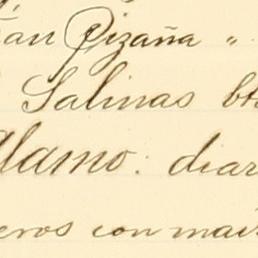 Pizaña "
Salinas
Alamo. diar
eros con mai